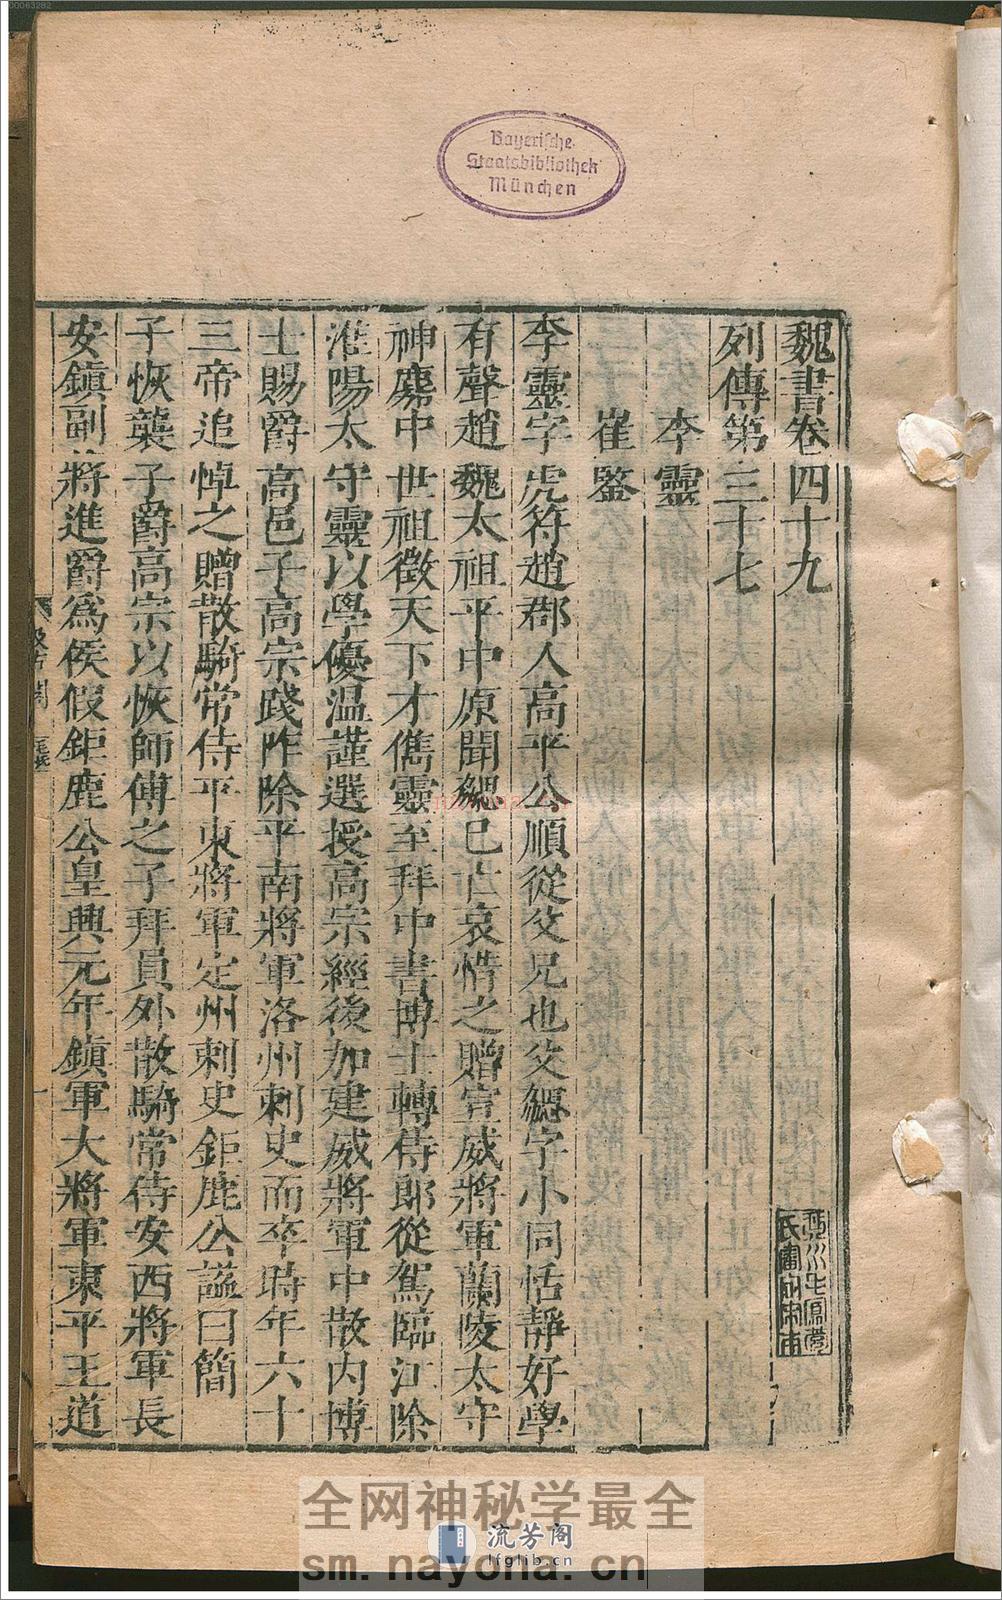 00063282
Bayerische
Staatsbibliothek
München
魏書卷四十九
列傳第三十七
李靈
崔鑒
李靈字虎符趙郡人高平公順從父兄也父勰字小同恬靜好學
有聲趙魏太祖平中原聞勰已亡哀惜之贈宣威將軍蘭陵太守
神䴥中世祖徵天下才儁靈至拜中書博士轉侍郎從駕臨江除
淮陽太守靈以學優溫謹選授高宗經後加建威將軍中散内博
士賜爵高邑子高宗踐阼除平南將軍洛州刺史而卒時年六十
三帝追悼之贈散騎常侍平東將軍定州刺史鉅鹿公謚曰簡
子恢襲子爵高宗以恢師傅之子拜員外散騎常侍安西將軍長
安鎮副將進爵爲侯假鉅鹿公皇興元年鎮軍大將軍東平王道
全网神秘学最全
流芳阁
lfglib.cn
sm.nayona.cn